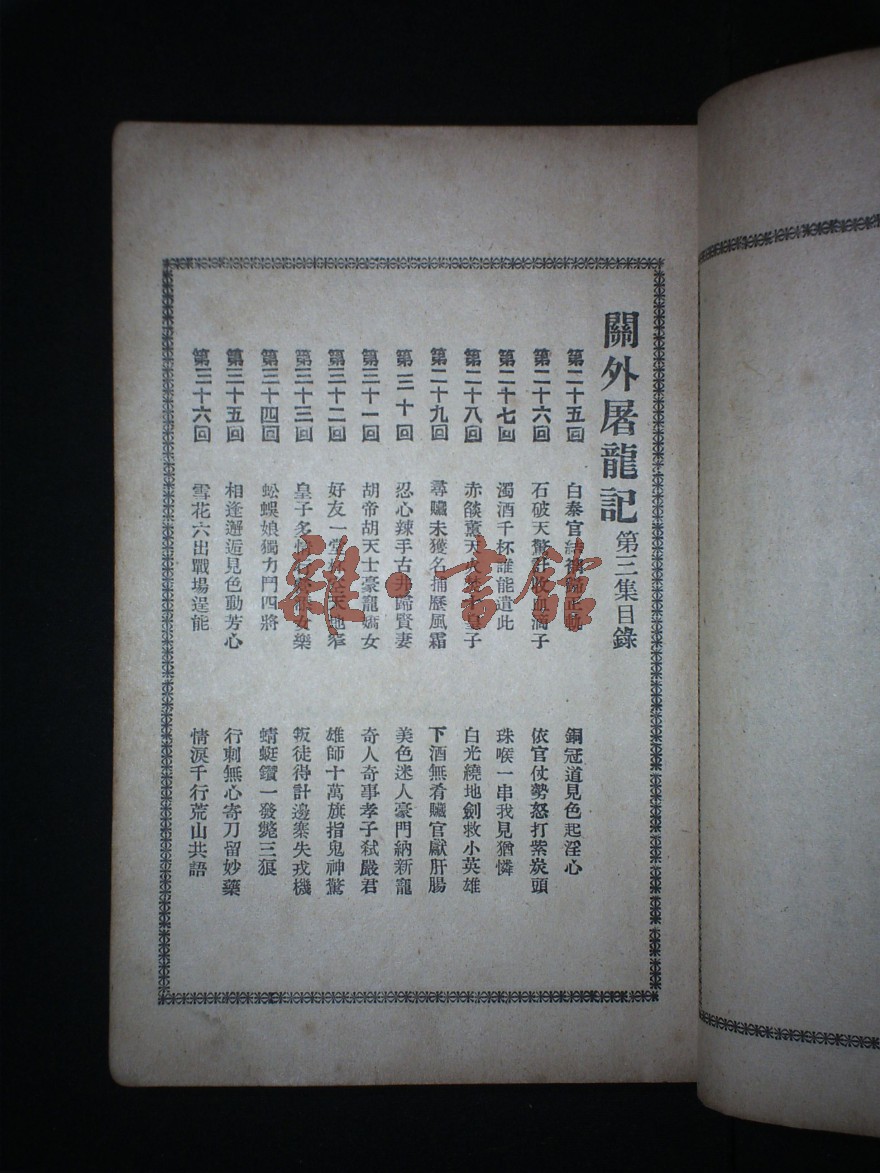 關外屠龍記 第三集目錄
第二十五回 白泰官 銅冠道見色起淫心
第二十六回 石破天驚 收血滴子 依官仗勢怒打紫炭頭
第二十七回 濁酒千杯誰能遣此 珠喉一串我見猶憐
第二十八回 赤燄薰天火 皇子 白光繞地劍救小英雄
第二十九回 尋贓未獲名捕歷風霜 下酒無肴贓官獻肝腸
第三十回 忍心辣手古井歸賢妻 美色迷人豪門納新寵
第三十一回 胡帝胡天士豪寵嬌女 奇人奇事孝子弒嚴君
第三十二回 好友一堂 天地窄 雄師十萬旗指鬼神驚
第三十三回 皇子多情 女樂 叛徒得計邊寨失戎機
第三十四回 蚣蜈娘獨力鬥四將 蜻蜓鑽一發斃三狼
第三十五回 相逢邂逅見色動芳心 行刺無心寄刀留妙藥
第三十六回 雪花六出戰場逞能 情淚千行荒山共語
雜·書館